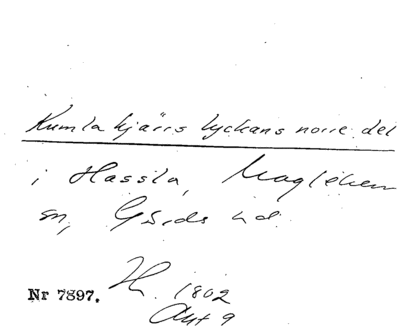 Kumla kjärrs lyckans norre del
i Hassla, Maglehem
sn, Gärds hd
H. 1802
Akt 9
Nr 7897.